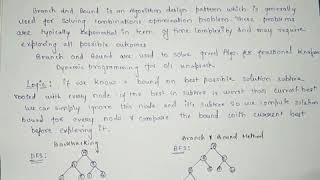 Branch and Bound is an algorithm design pattern which is generally
used for solving combinations optimization problem. These problems
are typically exponential in term of time complexity and may require
exploring all possible outcomes
Branch and Bound are used to solve greedy Algo. for fractional knapsack
Dynamic programming for 0/1 knapsack.
Logic: if we know a bound on best possible solution subtree
rooted with every node if the best in subtree is worst than current best
we can simply ignore this node and its subtree so we compute solution
bound for every node & compare the bound with current best
before exploring it.
Backtracking
Branch & Bound Method
DFS:
BFS: